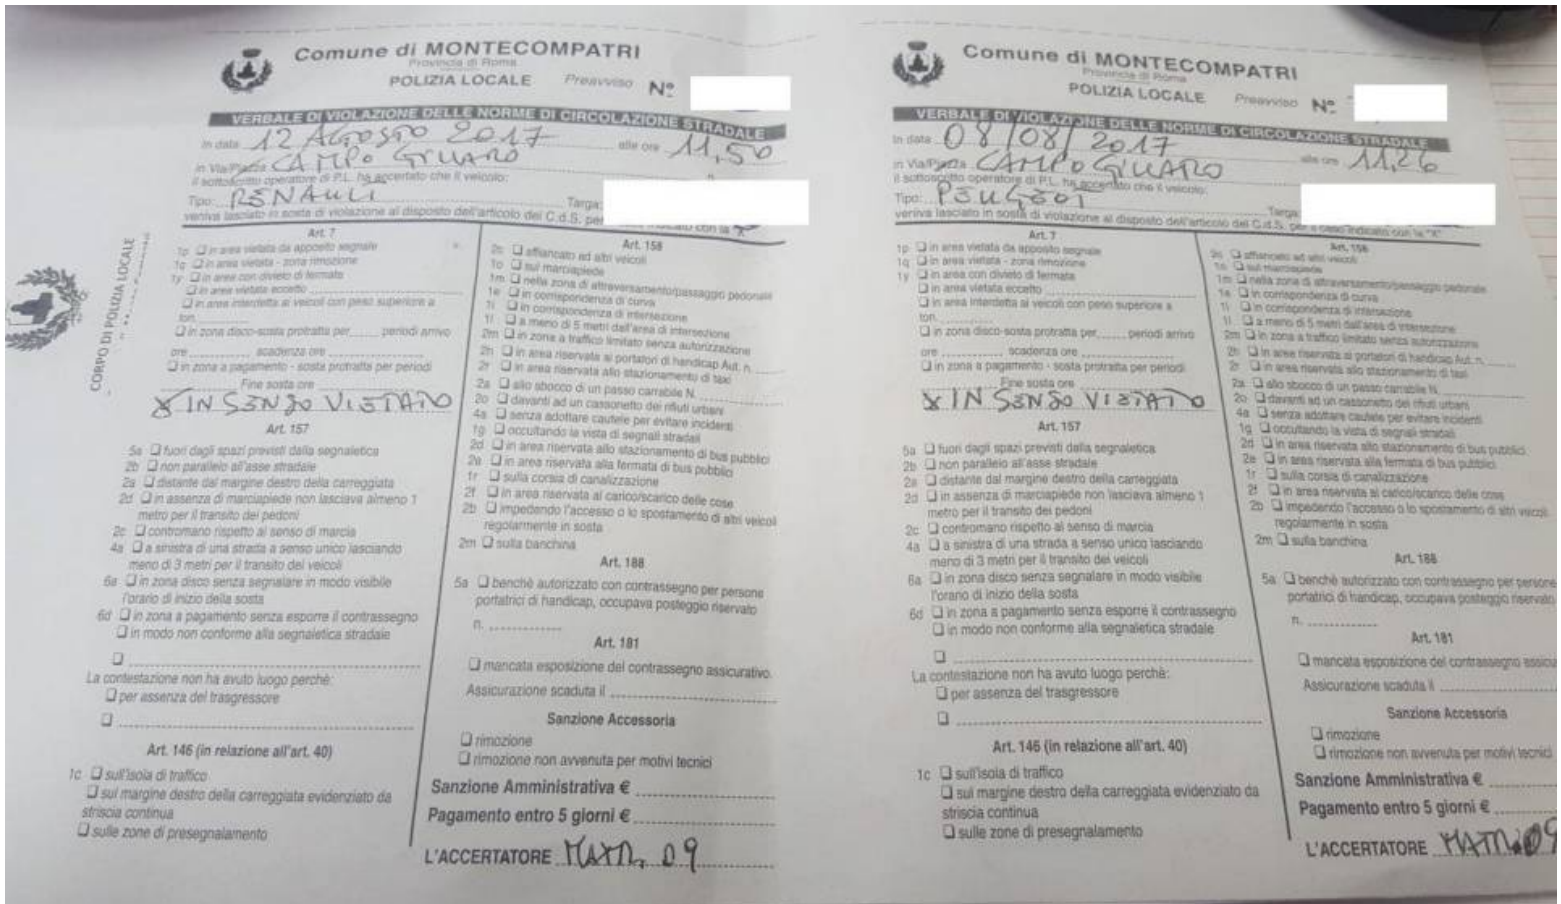 Comune di MONTECOMPATRI
Provincia di Roma
POLIZIA LOCALE Preavviso N°
VERBALE DI VIOLAZIONE DELLE NORME DI CIRCOLAZIONE STRADALE
In data 12 AGOSTO 2017 alle ore 11,50
in Via/Piazza CAMPO GILLARO n.
il sottoscritto operatore di P.L. ha accertato che il veicolo:
Tipo: RENAULT Targa:
veniva lasciato in sosta di violazione al disposto dell'articolo del C.d.S. per indicato con la "X"
CORPO DI POLIZIA LOCALE
Art. 7
1p ❑ in area vietata da apposito segnale
1q ❑ in area vietata - zona rimozione
1y ❑ in area con divieto di fermata
❑ in area vietata eccetto
❑ in area interdetta ai veicoli con peso superiore a
ton.
❑ in zona disco-sosta protratta per...... periodi arrivo
ore ............ scadenza ore
❑ in zona a pagamento - sosta protratta per periodi
Fine sosta ore
X IN SENSO VIETATO
Art. 157
5a ❑ fuori dagli spazi previsti dalla segnaletica
2b ❑ non parallelo all'asse stradale
2a ❑ distante dal margine destro della carreggiata
2d ❑ in assenza di marciapiede non lasciava almeno 1
metro per il transito dei pedoni
2c ❑ contromano rispetto al senso di marcia
4a ❑ a sinistra di una strada a senso unico lasciando
meno di 3 metri per il transito dei veicoli
6a ❑ in zona disco senza segnalare in modo visibile
l'orario di inizio della sosta
6d ❑ in zona a pagamento senza esporre il contrassegno
❑ in modo non conforme alla segnaletica stradale
❑
La contestazione non ha avuto luogo perchè:
❑ per assenza del trasgressore
❑
Art. 146 (in relazione all'art. 40)
1c ❑ sull'isola di traffico
❑ sul margine destro della carreggiata evidenziato da
striscia continua
❑ sulle zone di presegnalamento
Art. 158
2c ❑ affiancato ad altri veicoli
1o ❑ sul marciapiede
1m ❑ nella zona di attraversamento/passaggio pedonale
1e ❑ in corrispondenza di curva
1i ❑ in corrispondenza di intersezione
1l ❑ a meno di 5 metri dall'area di intersezione
2m ❑ in zona a traffico limitato senza autorizzazione
2h ❑ in area riservata ai portatori di handicap Aut. n.
2r ❑ in area riservata allo stazionamento di taxi
2a ❑ allo sbocco di un passo carrabile N.
2o ❑ davanti ad un cassonetto dei rifiuti urbani
4a ❑ senza adottare cautele per evitare incidenti
1g ❑ occultando la vista di segnali stradali
2d ❑ in area riservata allo stazionamento di bus pubblici
2e ❑ in area riservata alla fermata di bus pubblico
1r ❑ sulla corsia di canalizzazione
2f ❑ in area riservata al carico/scarico delle cose
2b ❑ impedendo l'accesso o lo spostamento di altri veicoli
regolarmente in sosta
2m ❑ sulla banchina
Art. 188
5a ❑ benchè autorizzato con contrassegno per persone
portatrici di handicap, occupava posteggio riservato
n.
Art. 181
❑ mancata esposizione del contrassegno assicurativo.
Assicurazione scaduta il
Sanzione Accessoria
❑ rimozione
❑ rimozione non avvenuta per motivi tecnici
Sanzione Amministrativa €
Pagamento entro 5 giorni €
L'ACCERTATORE MATR. 09
Comune di MONTECOMPATRI
Provincia di Roma
POLIZIA LOCALE Preavviso N°
VERBALE DI VIOLAZIONE DELLE NORME DI CIRCOLAZIONE STRADALE
In data 08/08/2017 alle ore 11,26
in Via/Piazza CAMPO GILLARO
il sottoscritto operatore di P.L. ha accertato che il veicolo:
Tipo: PEUGEOT Targa:
veniva lasciato in sosta di violazione al disposto dell'articolo del C.d.S. per il caso indicato con la "X"
Art. 7
1p ❑ in area vietata da apposito segnale
1q ❑ in area vietata - zona rimozione
1y ❑ in area con divieto di fermata
❑ in area vietata eccetto
❑ in area interdetta ai veicoli con peso superiore a
ton.
❑ in zona disco-sosta protratta per...... periodi arrivo
ore ............ scadenza ore
❑ in zona a pagamento - sosta protratta per periodi
Fine sosta ore
X IN SENSO VIETATO
Art. 157
5a ❑ fuori dagli spazi previsti dalla segnaletica
2b ❑ non parallelo all'asse stradale
2a ❑ distante dal margine destro della carreggiata
2d ❑ in assenza di marciapiede non lasciava almeno 1
metro per il transito dei pedoni
2c ❑ contromano rispetto al senso di marcia
4a ❑ a sinistra di una strada a senso unico lasciando
meno di 3 metri per il transito dei veicoli
6a ❑ in zona disco senza segnalare in modo visibile
l'orario di inizio della sosta
6d ❑ in zona a pagamento senza esporre il contrassegno
❑ in modo non conforme alla segnaletica stradale
❑
La contestazione non ha avuto luogo perchè:
❑ per assenza del trasgressore
❑
Art. 146 (in relazione all'art. 40)
1c ❑ sull'isola di traffico
❑ sul margine destro della carreggiata evidenziato da
striscia continua
❑ sulle zone di presegnalamento
Art. 158
2c ❑ affiancato ad altri veicoli
1o ❑ sul marciapiede
1m ❑ nella zona di attraversamento/passaggio pedonale
1e ❑ in corrispondenza di curva
1i ❑ in corrispondenza di intersezione
1l ❑ a meno di 5 metri dall'area di intersezione
2m ❑ in zona a traffico limitato senza autorizzazione
2h ❑ in area riservata ai portatori di handicap Aut. n.
2r ❑ in area riservata allo stazionamento di taxi
2a ❑ allo sbocco di un passo carrabile N.
2o ❑ davanti ad un cassonetto dei rifiuti urbani
4a ❑ senza adottare cautele per evitare incidenti
1g ❑ occultando la vista di segnali stradali
2d ❑ in area riservata allo stazionamento di bus pubblici
2e ❑ in area riservata alla fermata di bus pubblici
1r ❑ sulla corsia di canalizzazione
2f ❑ in area riservata al carico/scarico delle cose
2b ❑ impedendo l'accesso o lo spostamento di altri veicoli
regolarmente in sosta
2m ❑ sulla banchina
Art. 188
5a ❑ benchè autorizzato con contrassegno per persone
portatrici di handicap, occupava posteggio riservato
n.
Art. 181
❑ mancata esposizione del contrassegno assicu
Assicurazione scaduta il
Sanzione Accessoria
❑ rimozione
❑ rimozione non avvenuta per motivi tecnici
Sanzione Amministrativa €
Pagamento entro 5 giorni €
L'ACCERTATORE MATR. 09